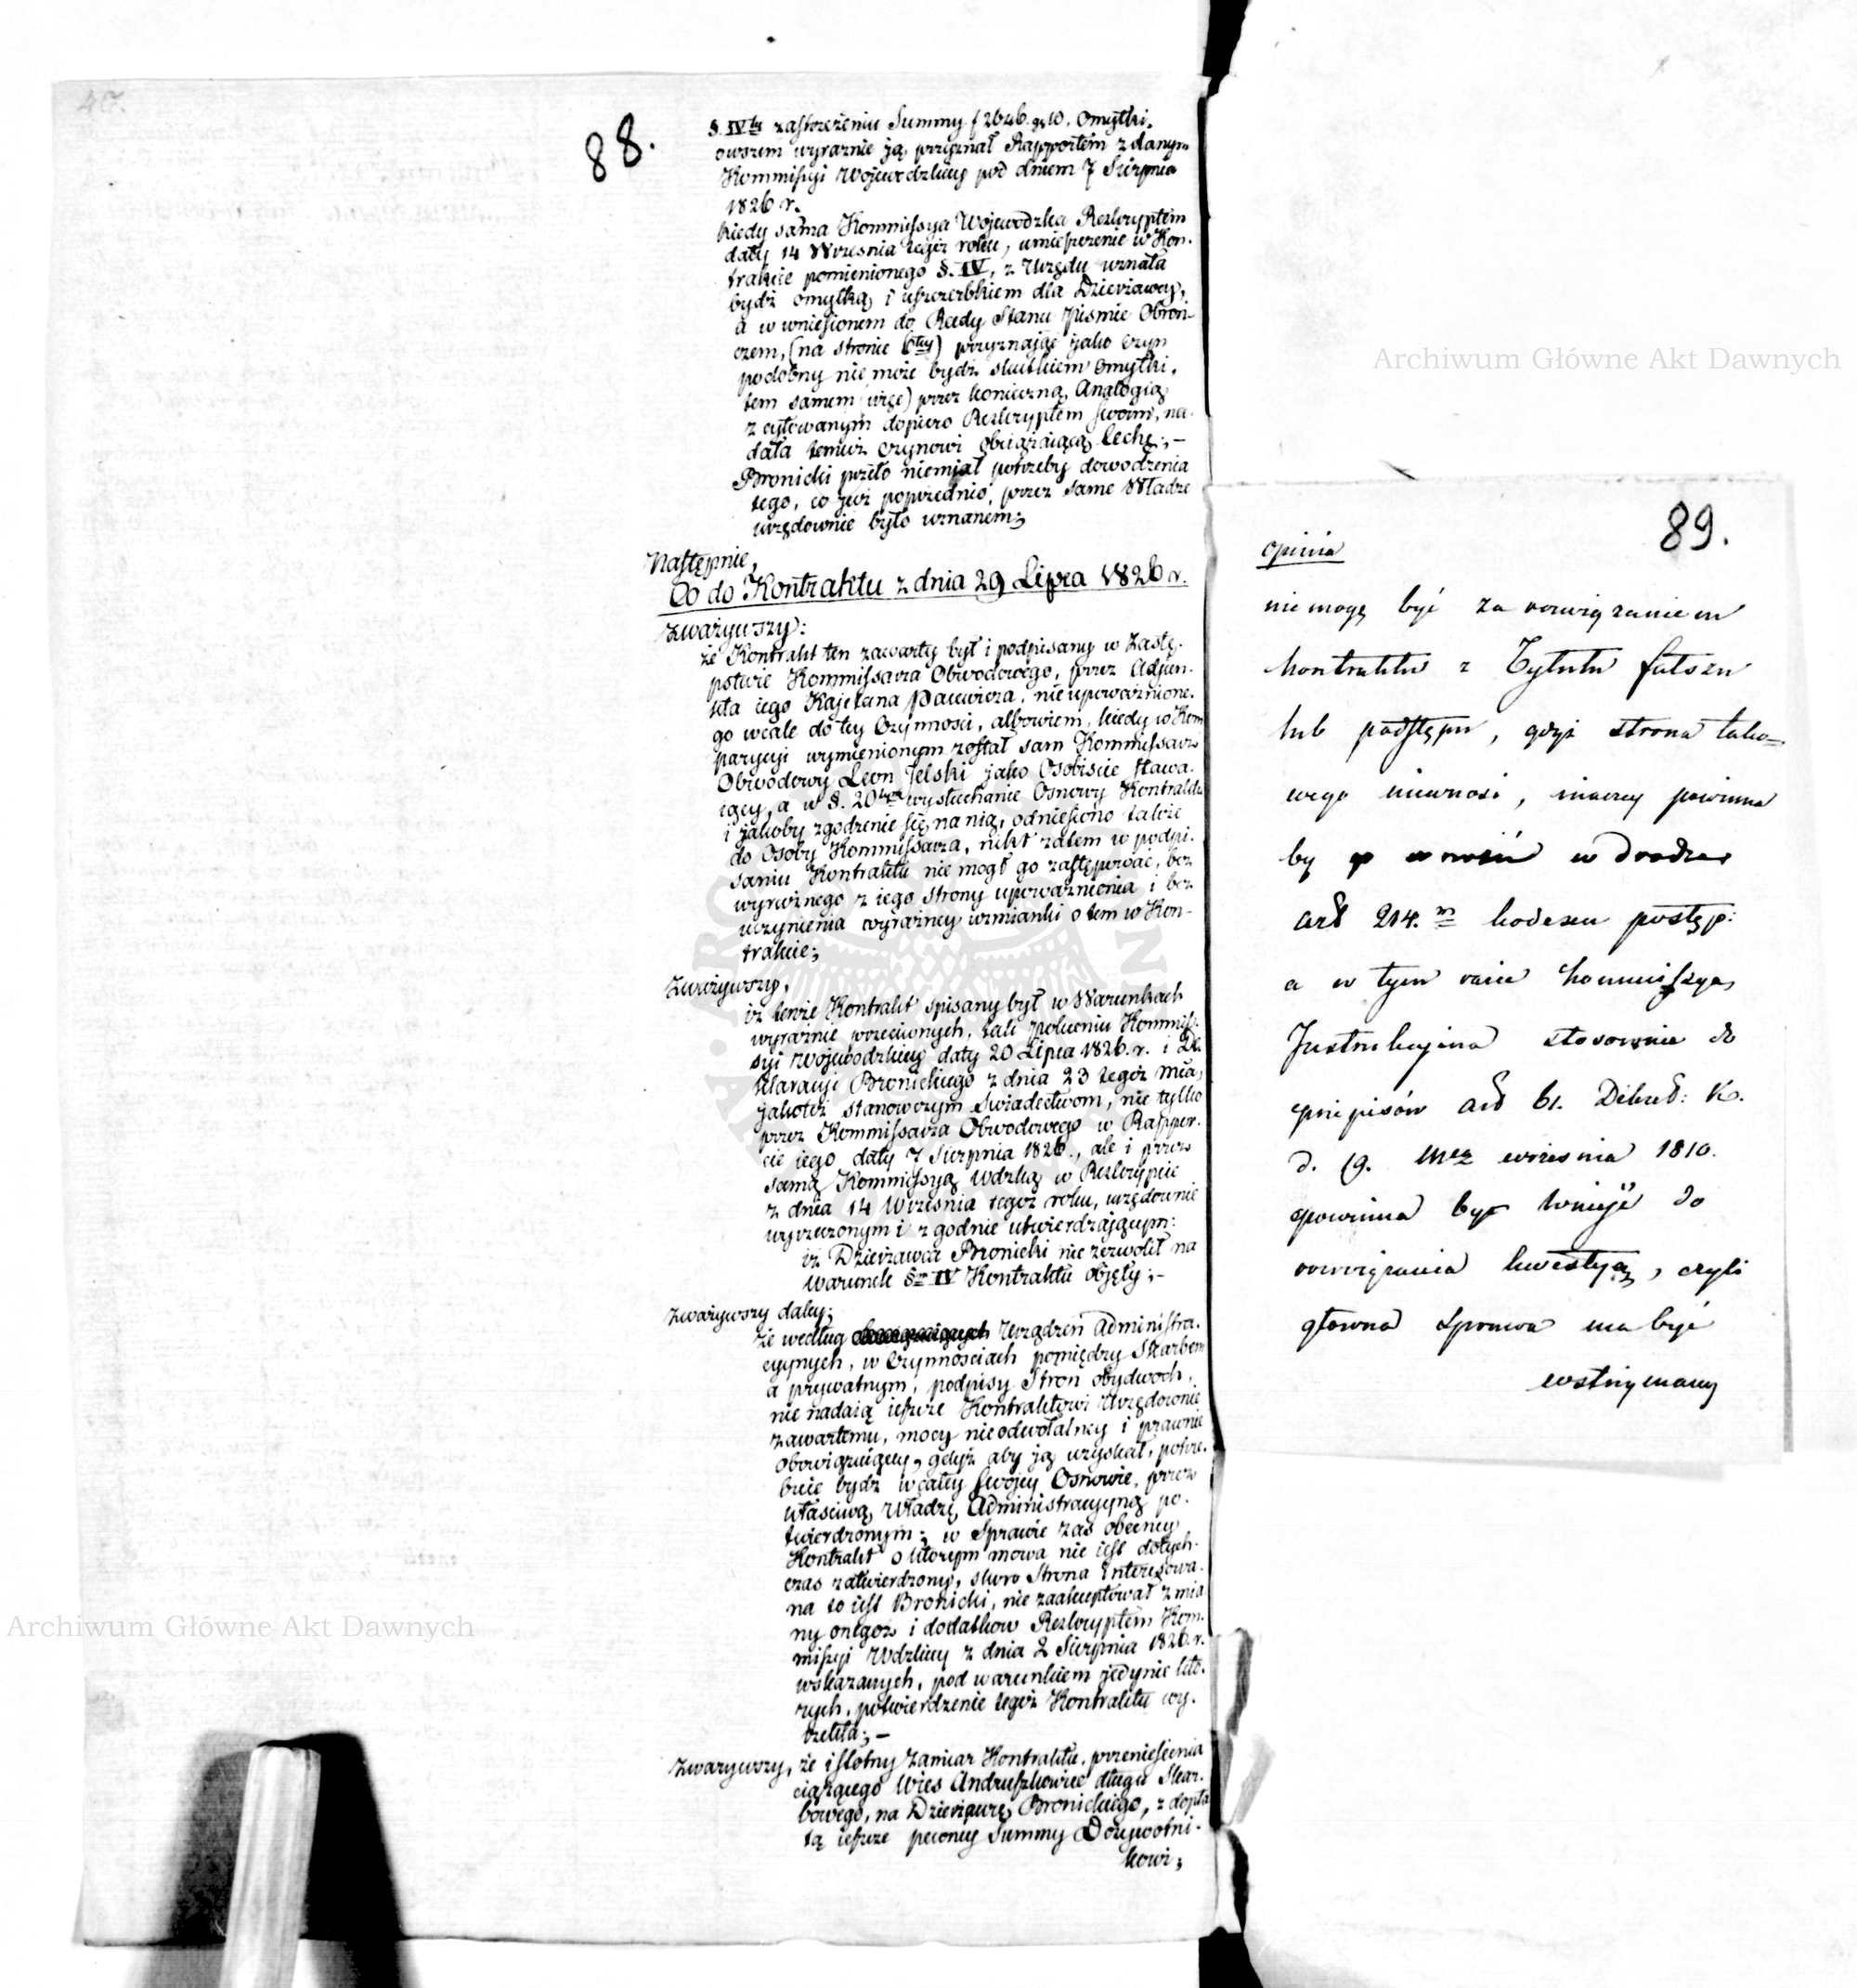 40.
88.
§. IVty zastrzeżeniu Summy f 2646. gr 10. Omyłki,
owszem wyraznie ją przyznał Rapportem zdanym
Kommissyi Wojewodzkiey pod dniem 7 Sierpnia
1826 r.
kiedy sama Kommissya Wojewodzka Reskryptem
daty 14 Wrzesnia tegoż roku, umieszczenie w Kon-
trakcie pomienionego §. IV, z Urzędu uznała
bydź omyłką, i uszczerbkiem dla Dzierżawcy,
a w wniesionem do Rady Stanu Pismie Obroń-
czem, (na stronie 6tey) przyznając jako czyn
podobny nie może bydź skutkiem Omyłki,
tem samem (więc) przez konieczną Analogią
z cytowanym dopiero Reskryptem swoim, na-
dała temuż czynowi obciążającą cechę; –
Bronicki przeto niemiał potrzeby dowodzenia
tego, co już poprzednio, przez same Władze
urzędownie było uznanem;
Następnie,
Co do Kontraktu z dnia 29 Lipca 1826 r.
Zważywszy:
że Kontrakt ten zawarty był i podpisany w Zastę-
pstwie Kommissarza Obwodowego, przez Adjun-
kta iego Kajetana, nieupoważnione-
go wcale do tey Czynnosci, albowiem, kiedy w Kom
parycyi wymienionym został sam Kommissarz
Obwodowy Leon Jelski jako Osobiscie stawa-
iący, a w §. 20tym wysłuchanie Osnowy Kontraktu
i jakoby zgodzenie się na nią, odniesiono także
do Osoby Kommissarza, nikt zatem w podpi-
saniu Kontraktu nie mogł go zastępować, bez
wyraznego z iego strony upoważnienia i bez
uczynienia wyrazney wzmianki o tem w Kon-
trakcie;
Zważywszy,
iż tenże Kontrakt spisany był w Warunkach
wyraznie przeciwnych, tak zleceniu Kommis-
syi Wojewodzkiey daty 20 Lipca 1826. r. i De
klaracyi Bronickiego z dnia 23 tegoż mca,
jakoteż stanowczym swiadectwom, nie tylko
przez Kommissarza Obwodowego w Rappor-
cie iego daty 7 Sierpnia 1826., ale i przez
samą Kommissyą Wdzką w Reskrypcie
z dnia 14 Wrzesnia tegoż roku, urzędownie
wyrzeczonym i zgodnie utwierdzającym:
iż Dzierżawca Bronicki nie zezwolił na
warunek §em IV Kontraktu objęty; –
Zważywszy daley;
że według Urządzeń Administra-
cyjnych, w Czynnosciach pomiędzy Skarbem
a prywatnym, podpisy Stron obydwoch,
nie nadaią ieszcze Kontraktowi Urzędownie
zawartemu, mocy nieodwołalney i prawnie
obowiązuiącey, gdyż aby ją uzyskał, potrze-
buie bydź w całey swojey Osnowie, przez
właściwą Władzę Administracyiną po-
twierdzonym; w Sprawie zas obecney
Kontrakt o którym mowa nie iest dotych-
czas zatwierdzony, skoro Strona Interesowa-
na to iest Bronicki, nie zaakceptował zmia
ny onegoż i dodatkow Reskryptem Kom-
missyi Wdzkiey z dnia 2 Sierpnia 1826. r.
wskazanych, pod warunkiem jedynie któ-
rych, potwierdzenie tegoż Kontraktu wy-
rzekła; –
Zważywszy, że istotny zamiar Kontraktu, przeniesienia
ciążącego Wies Andruszkowice długu Skar-
bowego, na Dzierżawę Bronickiego, z dopła
tą ieszcze pewney Summy Dożywotni-
kowi;
89.
opinia
nie mogę być za rozwiązaniem
kontraktu z Tytułu fałszu
lub podstępu, gdyż strona tako=
wego nie wnosi, inaczey powinna
by wnieść w drodze
art 214. m kodexu postęp:
a w tym razie kommissya
Instrukcyina stosownie do
przepisów art 61. Dekret: K.
d. 19. mca września 1810.
powinna być wnieść do
rozwiązania kwestyą, czyli
główna sprawa ma być
wstrzymaną
Archiwum Główne Akt Dawnych
Archiwum Główne Akt Dawnych